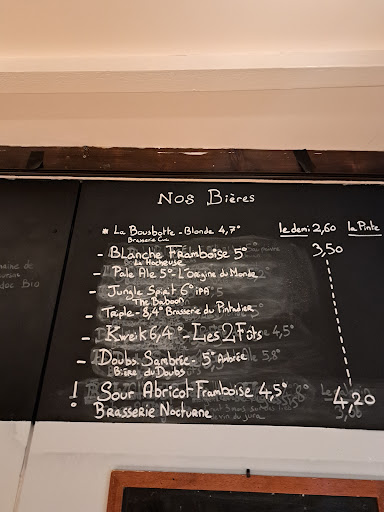 Nos Bières
* La Bousbotte - Blonde 4,7° le demi 2,60 la Pinte
Brasserie
- Blanche Framboise 5° 3,50
La Rocheuse
- Pale Ale 5° - L'Origine du Monde
- Jungle Spirit 6° iPA
The Baboon
- Triple - 8,4° Brasserie du Pintadier
- Kweik 6,4° - Les 2 Fûts
- Doubs Sambrée - 5° Ambrée
Bière du Doubs
! Sour Abricot Framboise 4,5° 4,20
Brasserie Nocturne